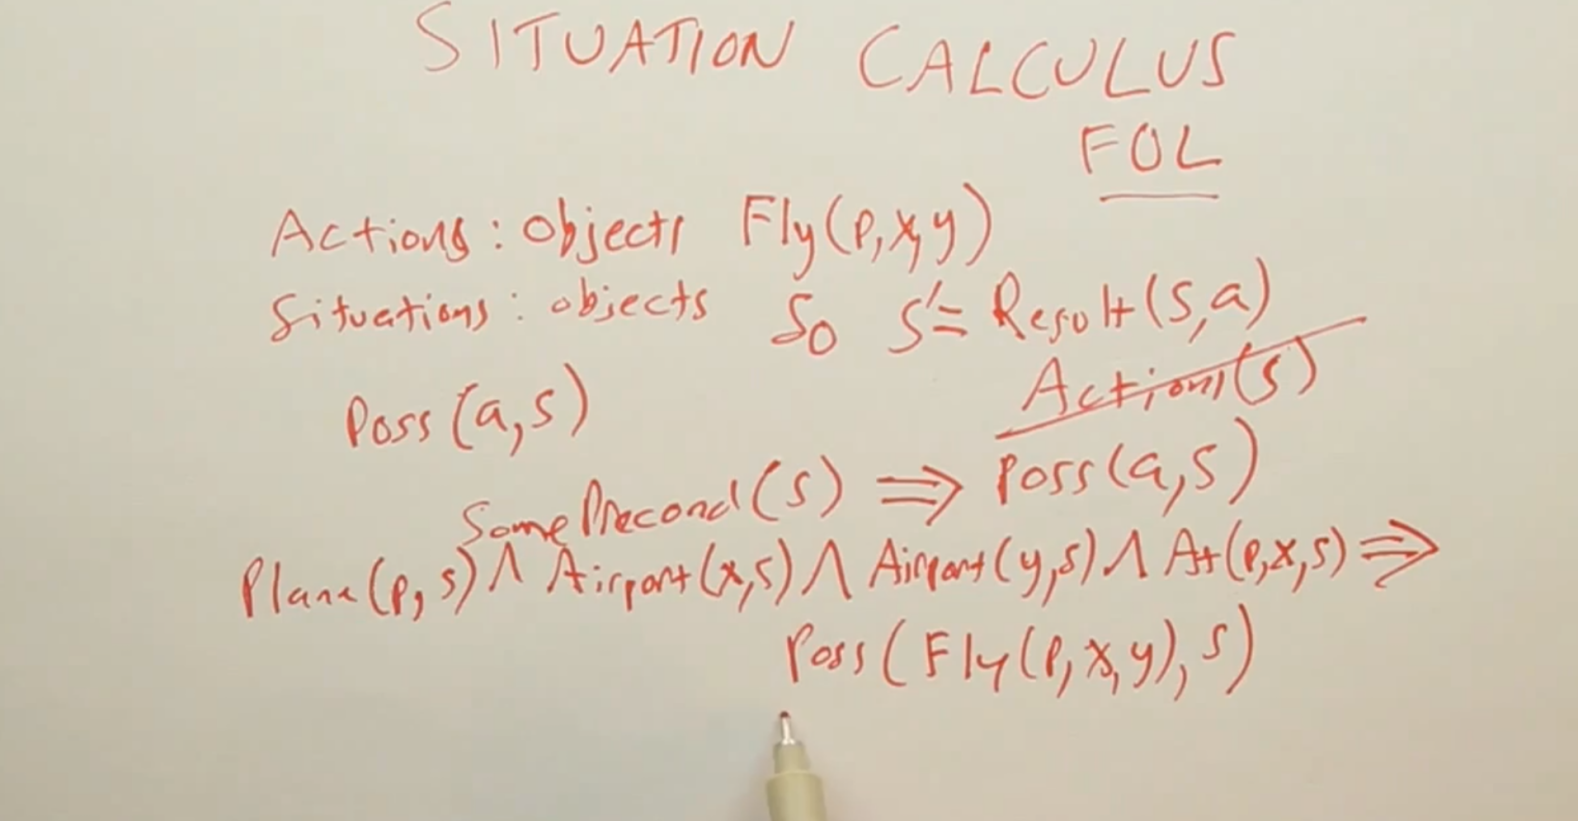 SITUATION CALCULUS
FOL
Actions: objects Fly(p,x,y)
Situations: objects S0 s'= Result(s,a)
Actions(s)
Poss(a,s)
SomePrecond(s) ⇒ Poss(a,s)
Plane(p,s) ∧ Airport(x,s) ∧ Airport(y,s) ∧ At(p,x,s) ⇒
Poss(Fly(p,x,y),s)